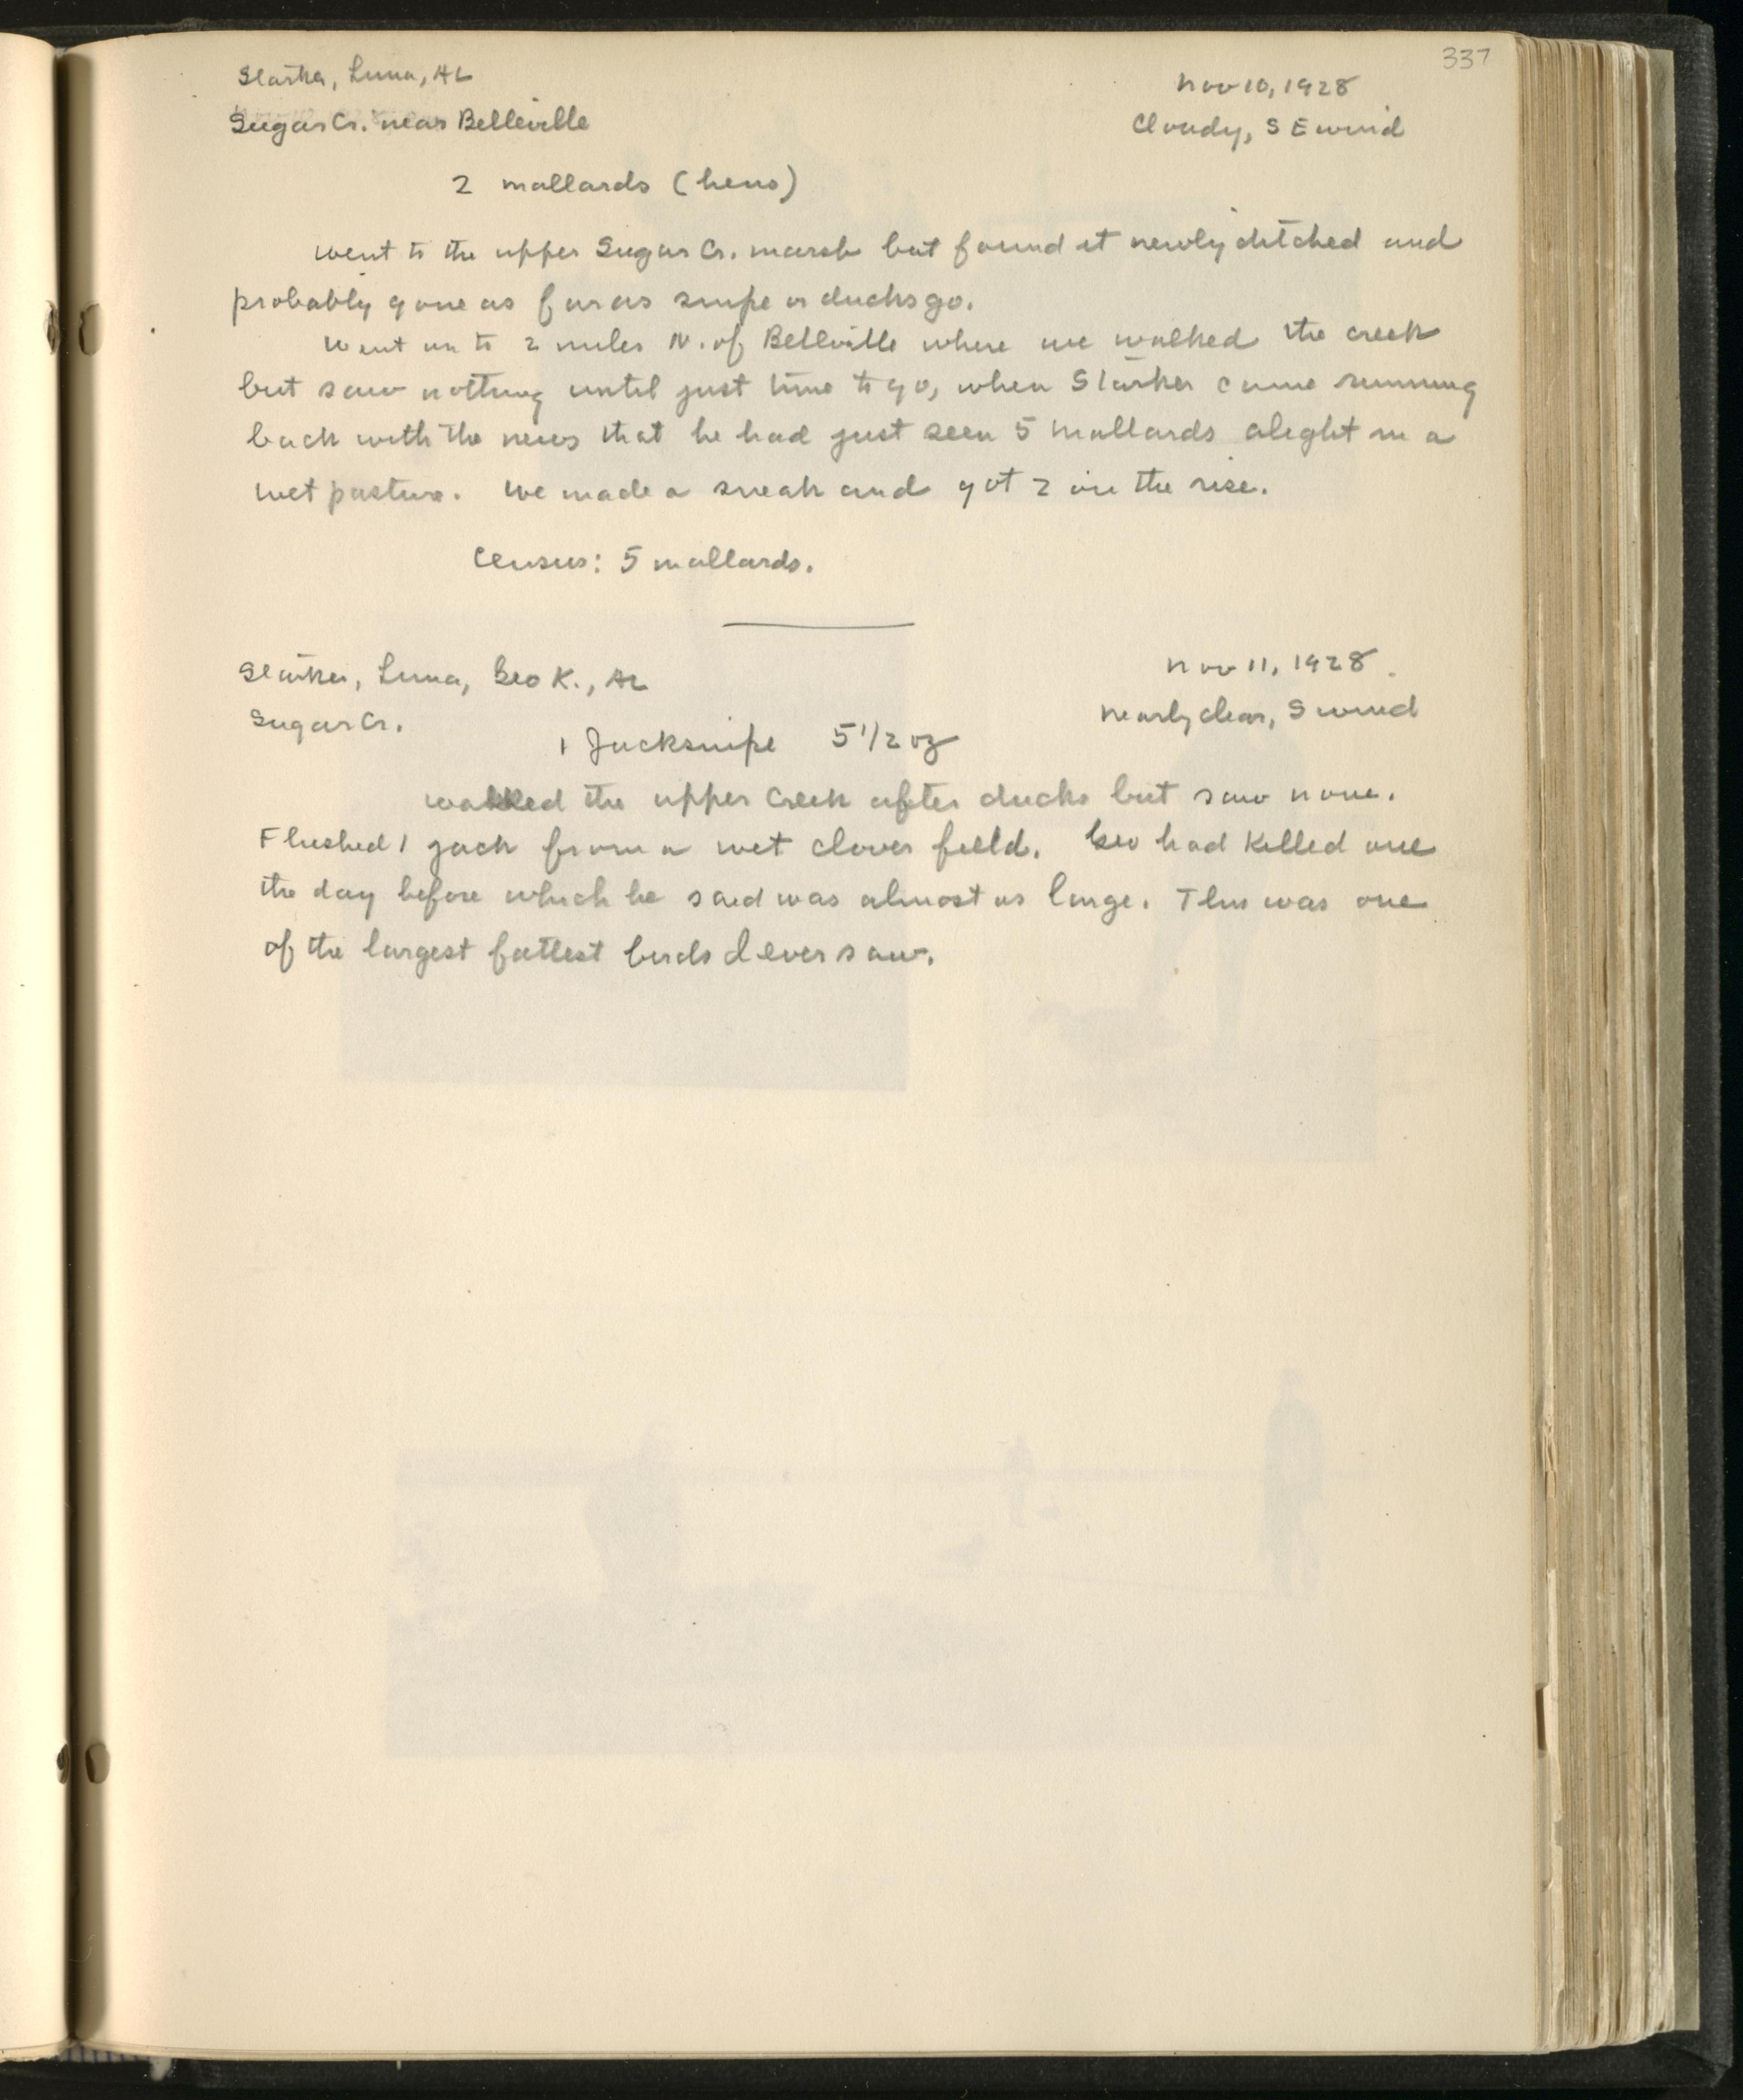 337
Starker, Luna, AL
Nov 10, 1928
Sugar Cr. near Belleville
Cloudy, SE wind
2 mallards (hens)
Went to the upper Sugar Cr. marsh but found it newly ditched and
probably gone as far as snipe or ducks go.
Went on to 2 miles N. of Belleville where we walked the creek
but saw nothing until just time to go, when Starker came running
back with the news that he had just seen 5 mallards alight in a
wet pasture. We made a sneak and got 2 on the rise.
Census: 5 mallards.
Starker, Luna, Geo K., AL
Nov 11, 1928.
Sugar Cr.
Nearly clear, S wind
1 Jacksnipe 5 1/2 oz
Walked the upper Creek after ducks but saw none.
Flushed 1 jack from a wet clover field. Geo had killed one
the day before which he said was almost as large. This was one
of the largest fattest birds I ever saw.